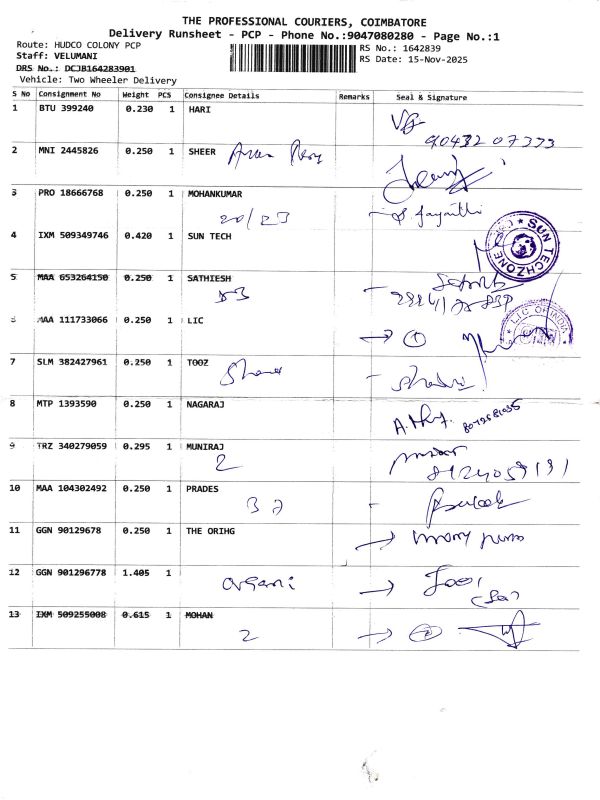 THE PROFESSIONAL COURIERS, COIMBATORE
Delivery Runsheet - PCP - Phone No.:9047080280 - Page No.:1
Route: HUDCO COLONY PCP
RS No.: 1642839
Staff: VELUMANI
RS Date: 15-Nov-2025
DRS No.: DCJB164283901
Vehicle: Two Wheeler Delivery
S No Consignment No Weight PCS Consignee Details Remarks Seal & Signature
1 BTU 399240 0.230 1 HARI
9043207333
2 MNI 2445826 0.250 1 SHEER
3 PRO 18666768 0.250 1 MOHANKUMAR
20/23
4 IXM 509349746 0.420 1 SUN TECH
SUN TECHZONE
5 MAA 653264150 0.250 1 SATHIESH
83
6 MAA 111733066 0.250 1 LIC
LIC OF INDIA
7 SLM 382427961 0.250 1 TOOZ
8 MTP 1393590 0.250 1 NAGARAJ
9 TRZ 340279059 0.295 1 MUNIRAJ
2
10 MAA 104302492 0.250 1 PRADES
11 GGN 90129678 0.250 1 THE ORIHG
12 GGN 901296778 1.405 1
13 IXM 509255008 0.615 1 MOHAN
2